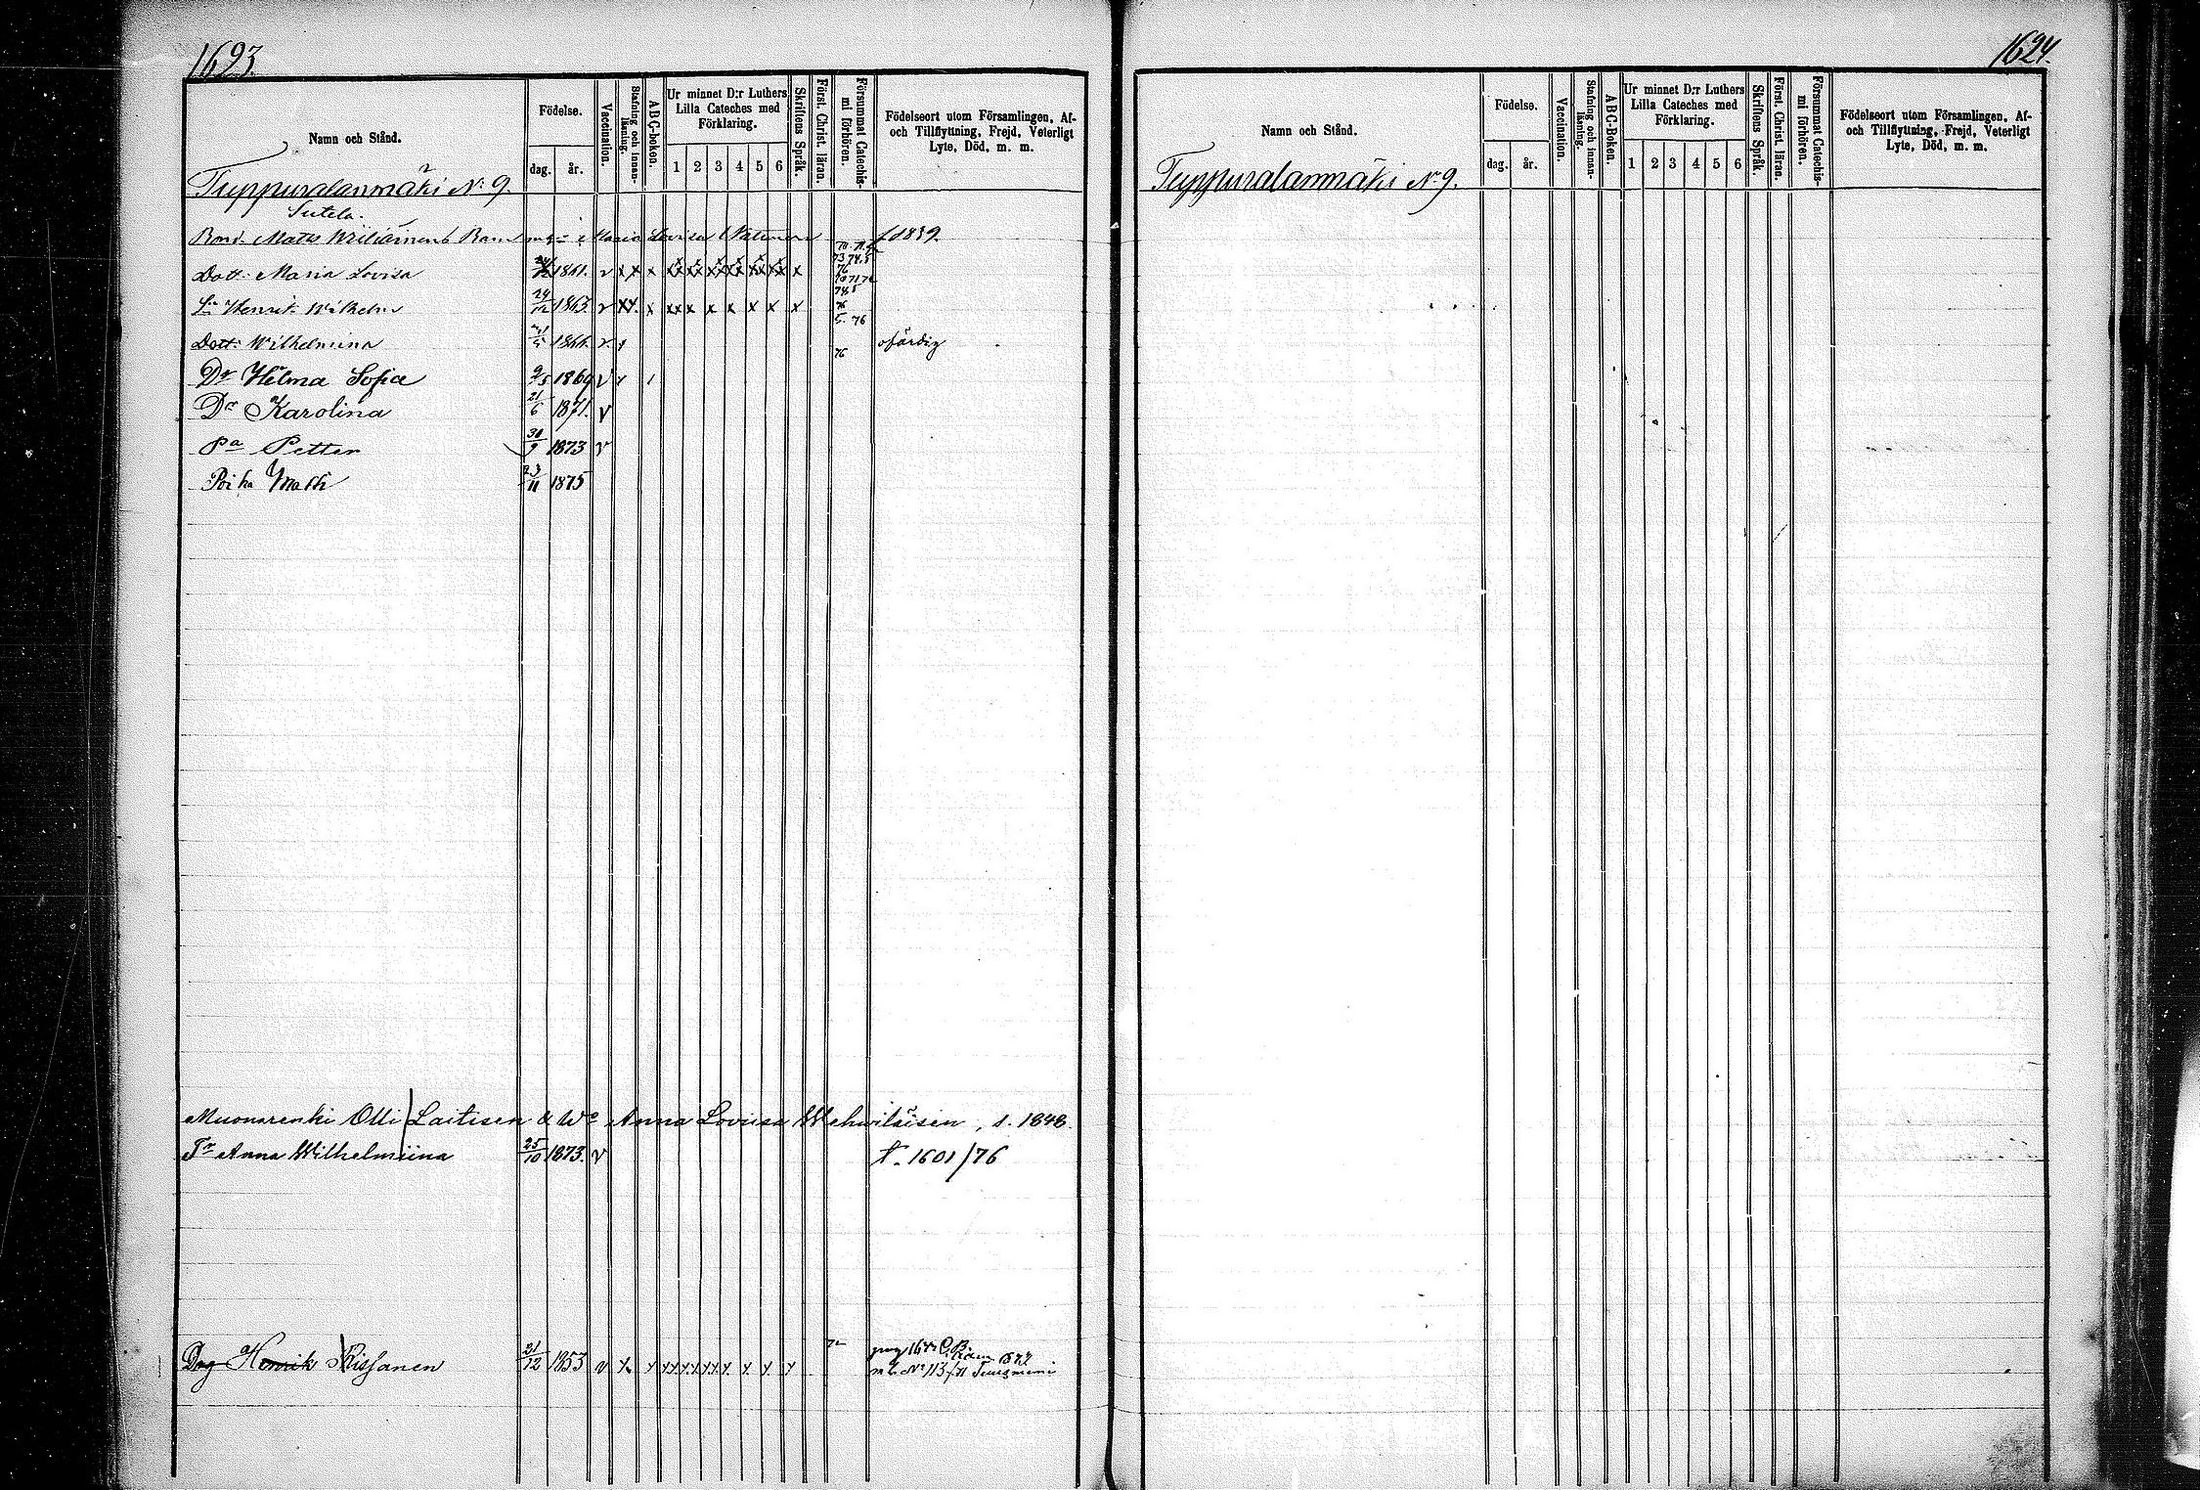 1623.
Namn och Stånd.
Födelse.
dag.
år.
Vaccination.
Stafning och innanläsning.
ABC-boken.
Ur minnet D:r Luthers Lilla Cateches med Förklaring.
1 2 3 4 5 6
Skriftens Språk.
Först. Christ. läran.
Försummat Catechismi förhören.
Födelseort utom Församlingen, Af- och Tillflyttning, Frejd, Veterligt Lyte, Död, m. m.
Tuppuralanmäki N:o 9.
Sutela.
Bond. Matts Barn med Maria Lovisa f. 1839.
Dott. Maria Lovisa 1861. v x x x x
Sn Henrik Wilhelm 24/12 1863. v xx. x xx x x x x x x 76
Dott. Wilhelmina 1866. v. 76 ofärdig
Dr Hilma Sofia 9/5 1869 v
Dr Karolina 21/6 1871. v
Pa Petter 30/9 1873 v
Poika Matti 23/11 1875
Muonarenki Olli Laitisen & Wo Anna Loviisa Wehviläisen, s. 1848.
Tr Anna Wilhelmiina 25/10 1873. v t. 1601/76
Drg Henrik Rissanen 21/12 1853 v
No 113/71
1624.
Namn och Stånd.
Födelse.
dag.
år.
Vaccination.
Stafning och innanläsning.
ABC-Boken.
Ur minnet D:r Luthers Lilla Cateches med Förklaring.
1 2 3 4 5 6
Skriftens Språk.
Först. Christ. läran.
Försummat Catechismi förhören.
Födelseort utom Församlingen, Af- och Tillflyttning, Frejd, Veterligt Lyte, Död, m. m.
Tuppuralanmäki N:o 9.